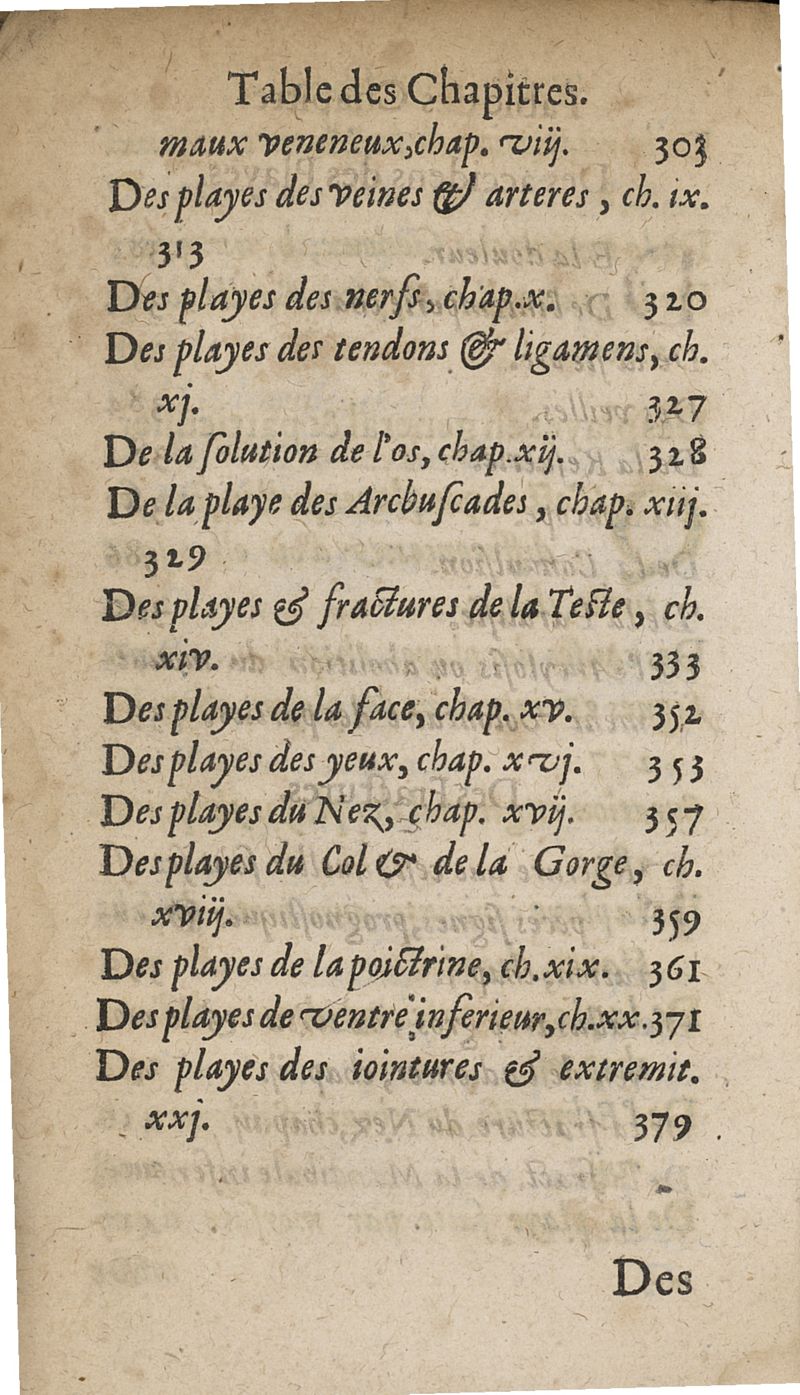 Table des Chapitres.
maux veneneux, chap. viij. 303
Des playes des veines & arteres, ch. ix.
313
Des playes des nerfs, chap. x. 320
Des playes des tendons & ligamens, ch.
xj. 327
De la ſolution de l'os, chap. xij. 328
De la playe des Arcbuſcades, chap. xiij.
329
Des playes & fractures de la Teſte, ch.
xiv. 333
Des playes de la face, chap. xv. 352
Des playes des yeux, chap. xvj. 353
Des playes du Nez, chap. xvij. 357
Des playes du Col & de la Gorge, ch.
xviij. 359
Des playes de la poictrine, ch. xix. 361
Des playes de ventre inferieur, ch. xx. 371
Des playes des iointures & extremit.
xxj. 379
Des